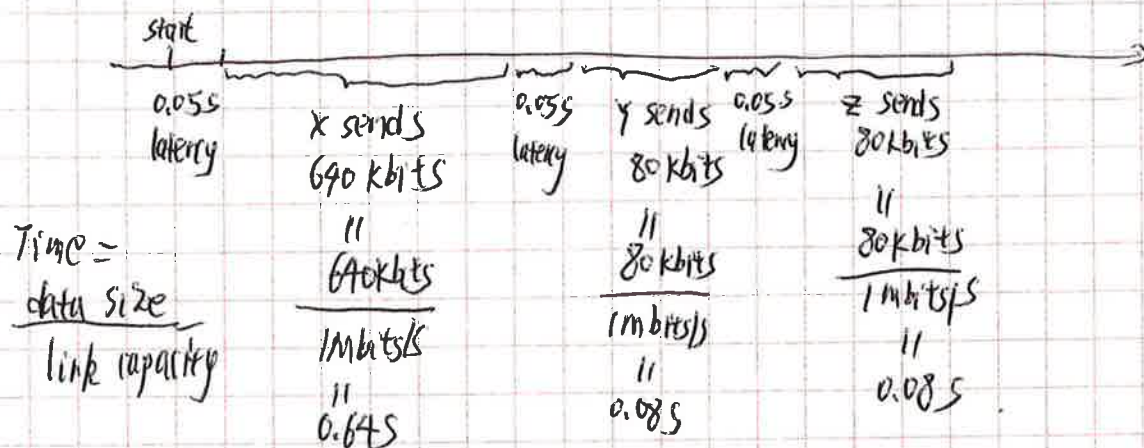 start
0.05s
latency
X sends
640 kbits
=
640kbits
1Mbits/s
=
0.64s
0.05s
latency
Y sends
80 kbits
=
80 kbits
1mbits/s
=
0.08s
0.05s
latency
Z sends
80kbits
=
80kbits
1mbits/s
=
0.08s
Time =
data size
link capacity